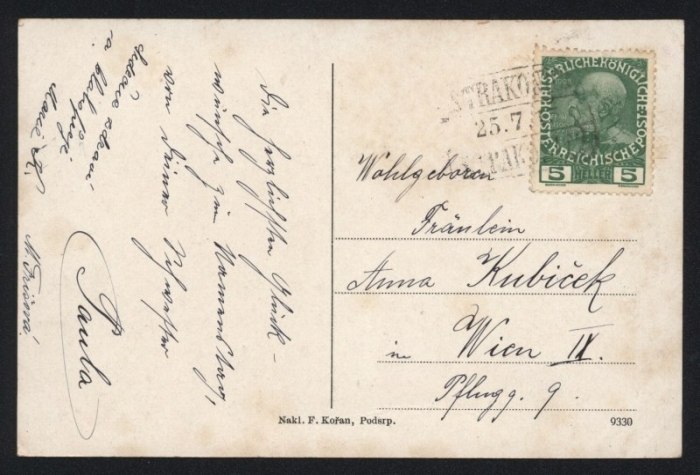 Die herzlichsten Glück-
wünsche zum Namenstag,
von Deiner Schwester
Paula
Srdečné zdraví
a blahopřeje
Marie K.
STRAKO
25.7
KAISERLICHEKÖNIGLICHE
ÖSTERREICHISCHE POST
5 HELLER 5
Wohlgeboren
Fräulein
Anna Kubiček
in Wien IX.
Pflugg. 9.
Nakl. F. Kořan, Podsrp.
9330